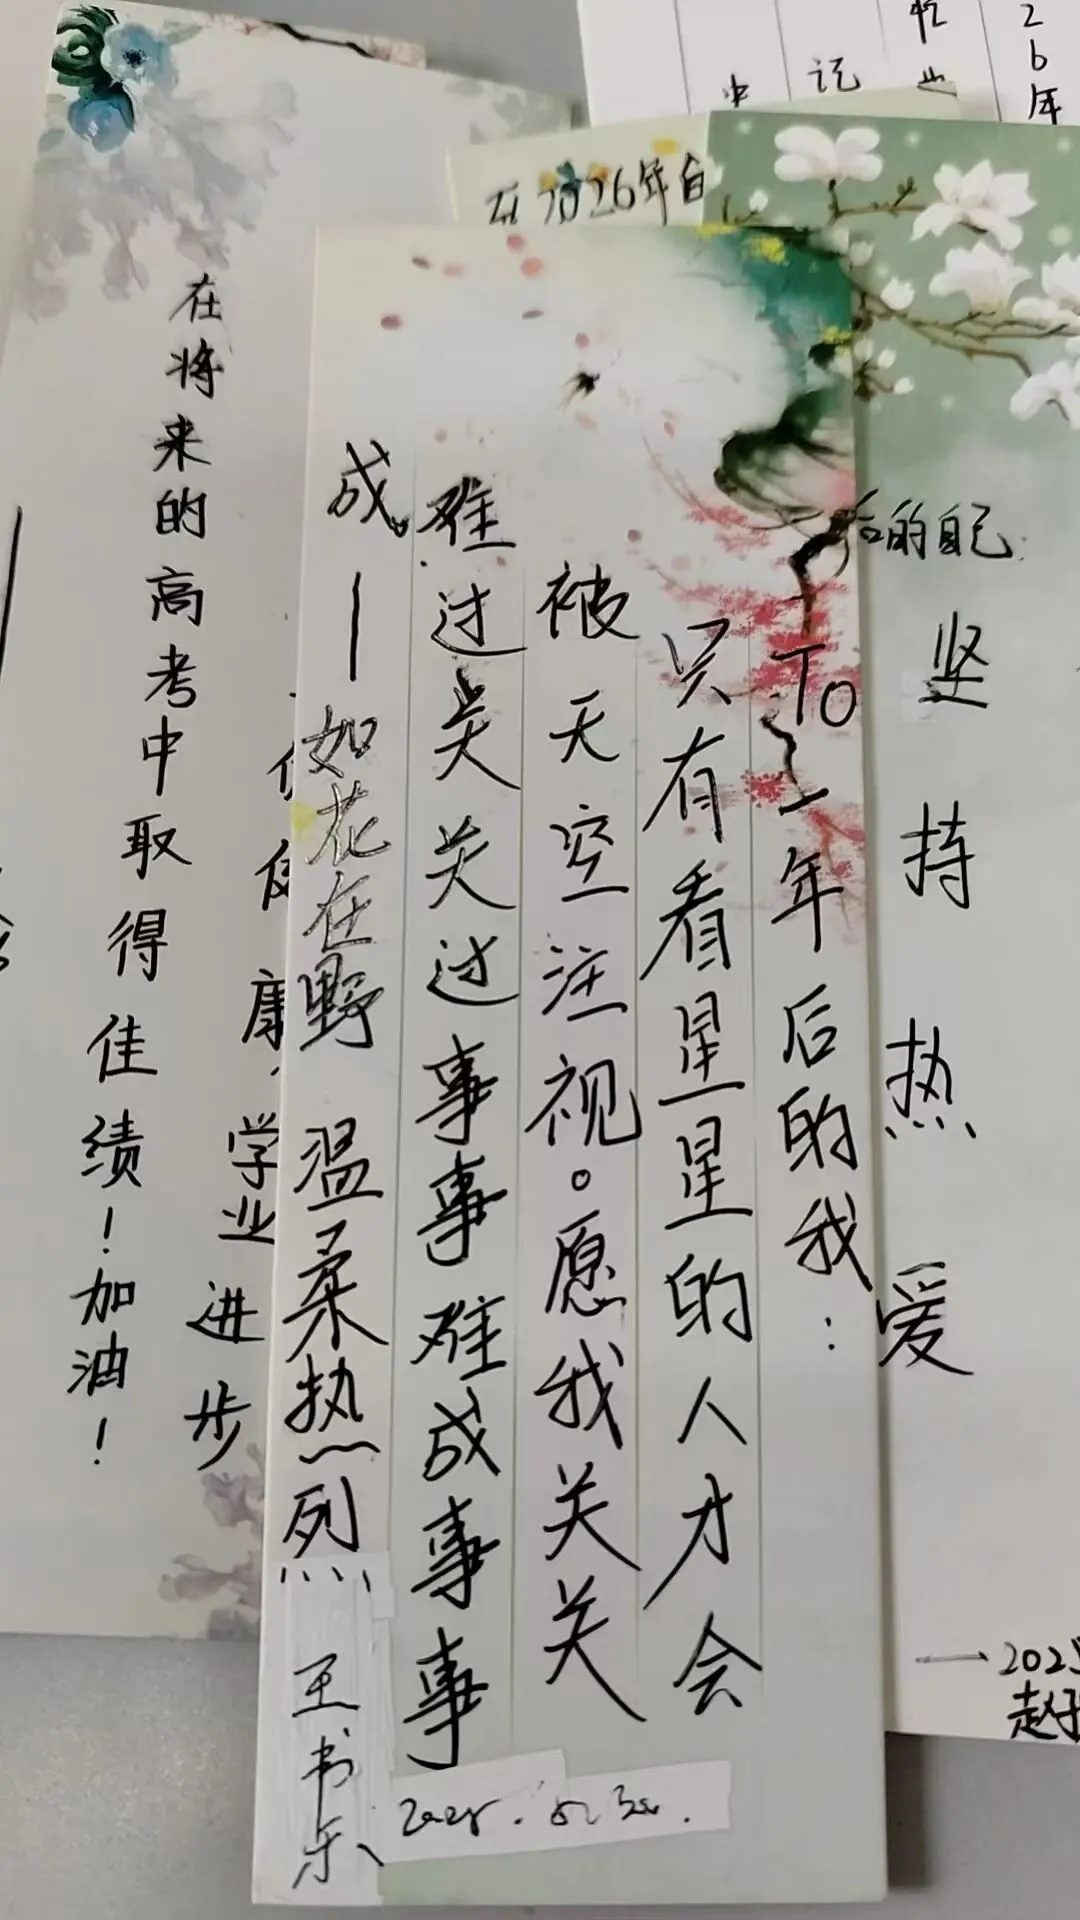 To一年后的我：
只有看星星的人才会
被天空注视。愿我关关
难过关关过事事难成事事
成。
——如花在野 温柔热烈
王书乐
2025.5.30.
在将来的高考中取得佳绩！加油！
康，学业进步
后的自己：
坚持热爱
在2026年自
26年
记